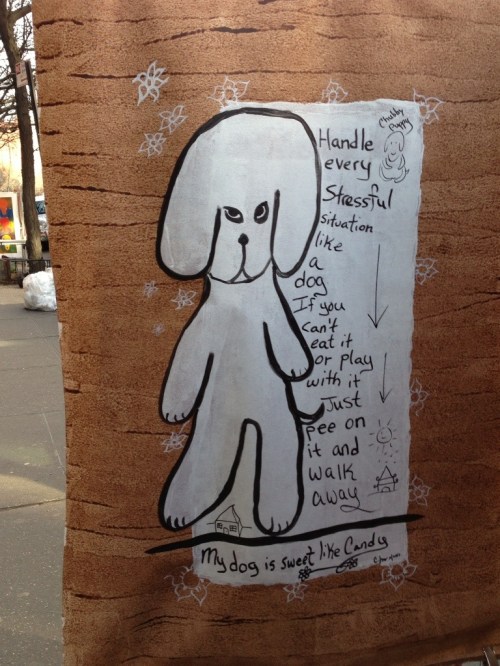 Chubby
Puppy
Handle
every
Stressful
situation
like
a
dog
If you
can't
eat it
or play
with it
Just
pee on
it and
walk
away
My dog is sweet like Candy